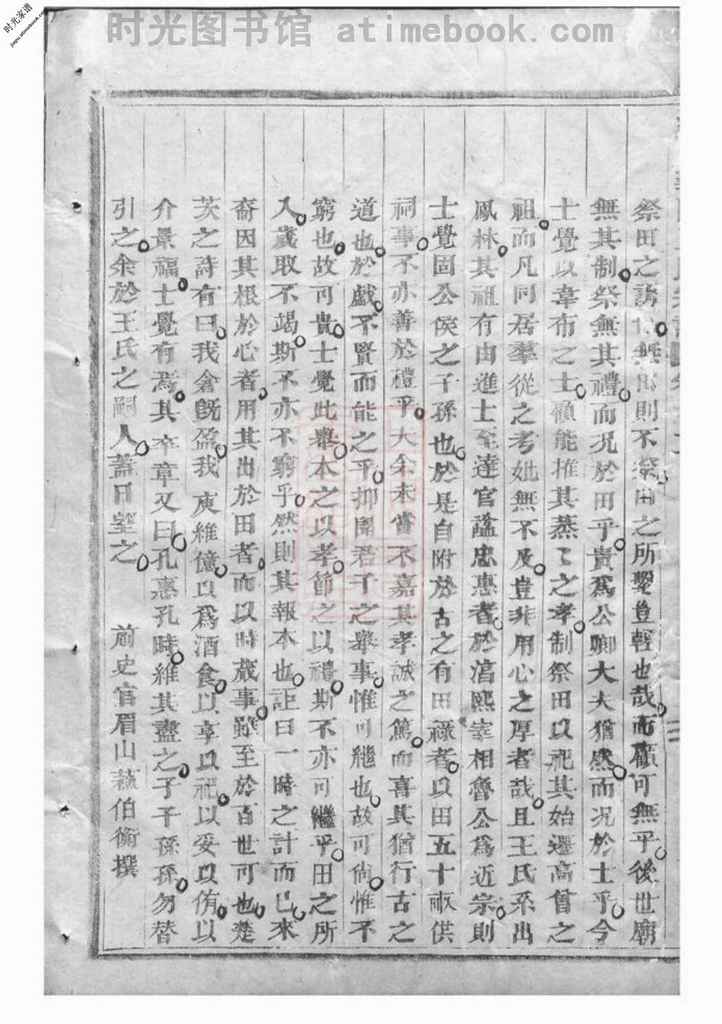 时光图书馆 atimebook.com
时光家谱
jiapu.atimebook.com
祭田之設無則不祭田之所繫豈輕也哉而顧可無乎後世廟
無其制祭無其禮而况於田乎貴爲公卿大夫猶然而况於士乎今
士覺以韋布之士顧能推其蒸〻之孝制祭田以祀其始遷高曾之
祖而凡同居羣從之考妣無不及豈非用心之厚者哉且王氏系出
鳳林其祖有由進士至達官諡忠惠者於淳熙宰相魯公爲近宗則
士覺固公侯之子孫也於是自附於古之有田祿者以田五十畝供
祠事不亦善於禮乎大余未嘗不嘉其孝誠之篤而喜其猶行古之
道也於戲不賢而能之乎抑聞君子之舉事惟可繼也故可尚惟不
窮也故可貴士覺此舉本之以孝節之以禮斯不亦可繼乎田之所
入歲取不竭斯不亦不窮乎然則其報本也詎曰一時之計而已來
裔因其根於心者用其出於田者而以時蕆事雖至於百世可也楚
茨之詩有曰我倉旣盈我庾維億以爲酒食以享以祀以妥以侑以
介景福士覺有焉其卒章又曰孔惠孔時維其盡之子子孫孫勿替
引之余於王氏之嗣人蓋日望之 前史官眉山蘇伯衡撰